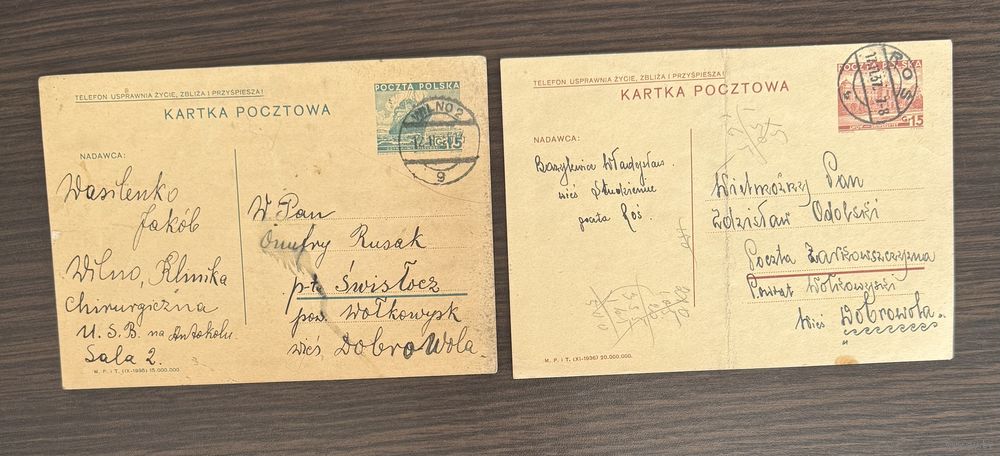 TELEFON USPRAWNIA ŻYCIE, ZBLIŻA I PRZYŚPIESZA!
KARTKA POCZTOWA
POCZTA POLSKA
GR 15
WILNO 2
9
NADAWCA:
Wasilenko
Jakób
Wilno, Klinika
Chirurgiczna
U.S.B. na Antokolu
Sala 2.
W Pan
Onufry Rusak
p-ta Świsłocz
pow. Wołkowysk
wieś Dobrowola
M. P. i T. (IX-1936) 15.000.000.
TELEFON USPRAWNIA ŻYCIE, ZBLIŻA I PRZYŚPIESZA!
KARTKA POCZTOWA
POCZTA POLSKA
GR 15
ROŚ
NADAWCA:
Władysław
wieś Studzieniec
poczta Roś.
Wielmożny Pan
Zdzisław
Poczta
Powiat Wołkowyski
Wieś Dobrowola.
M. P. i T. (XI-1936) 20.000.000.